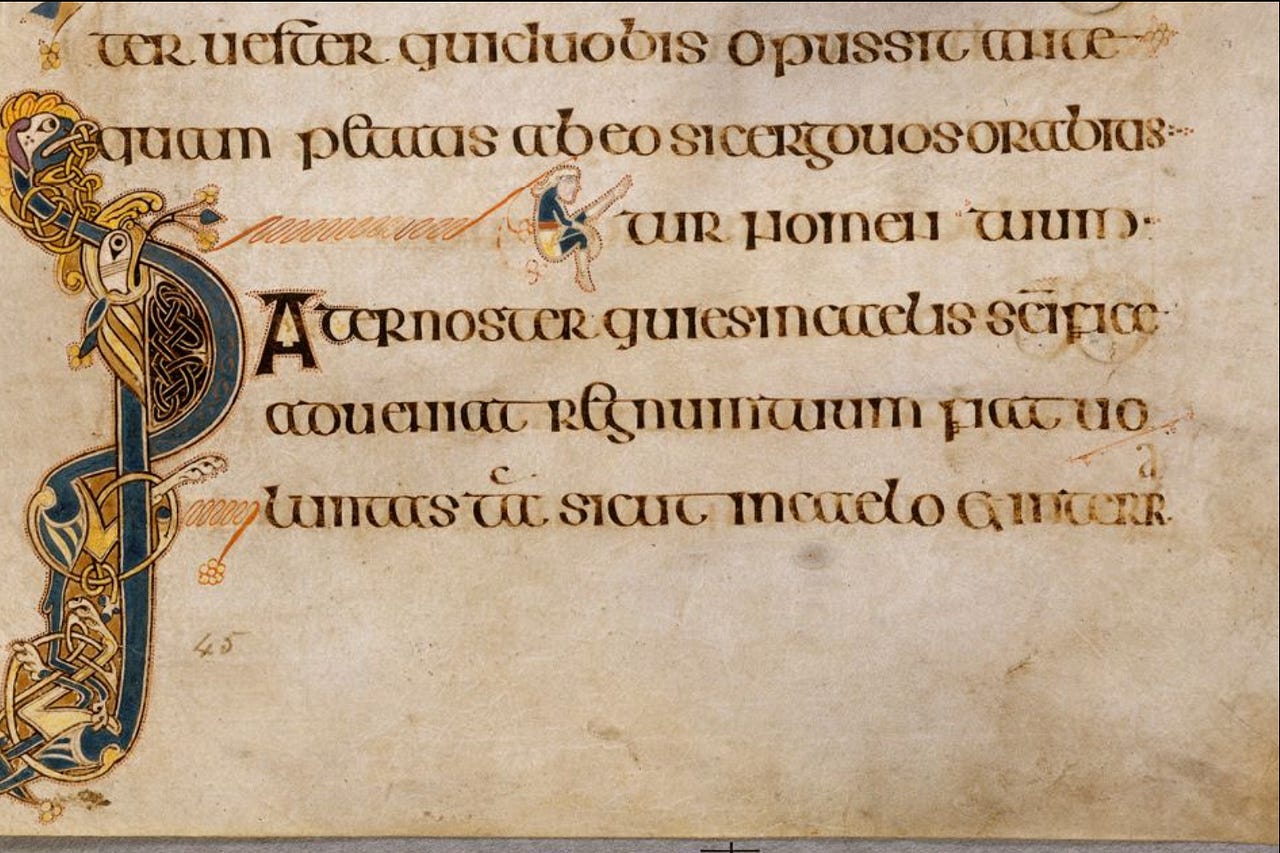 ter uester quid uobis opus sit ante
quam petatis ab eo sic ergo uos orabitis
tur nomen tuum
Pater noster qui es in caelis scīfice
adueniat regnum tuum fiat uo
luntas tua sicut in caelo & in terra
45